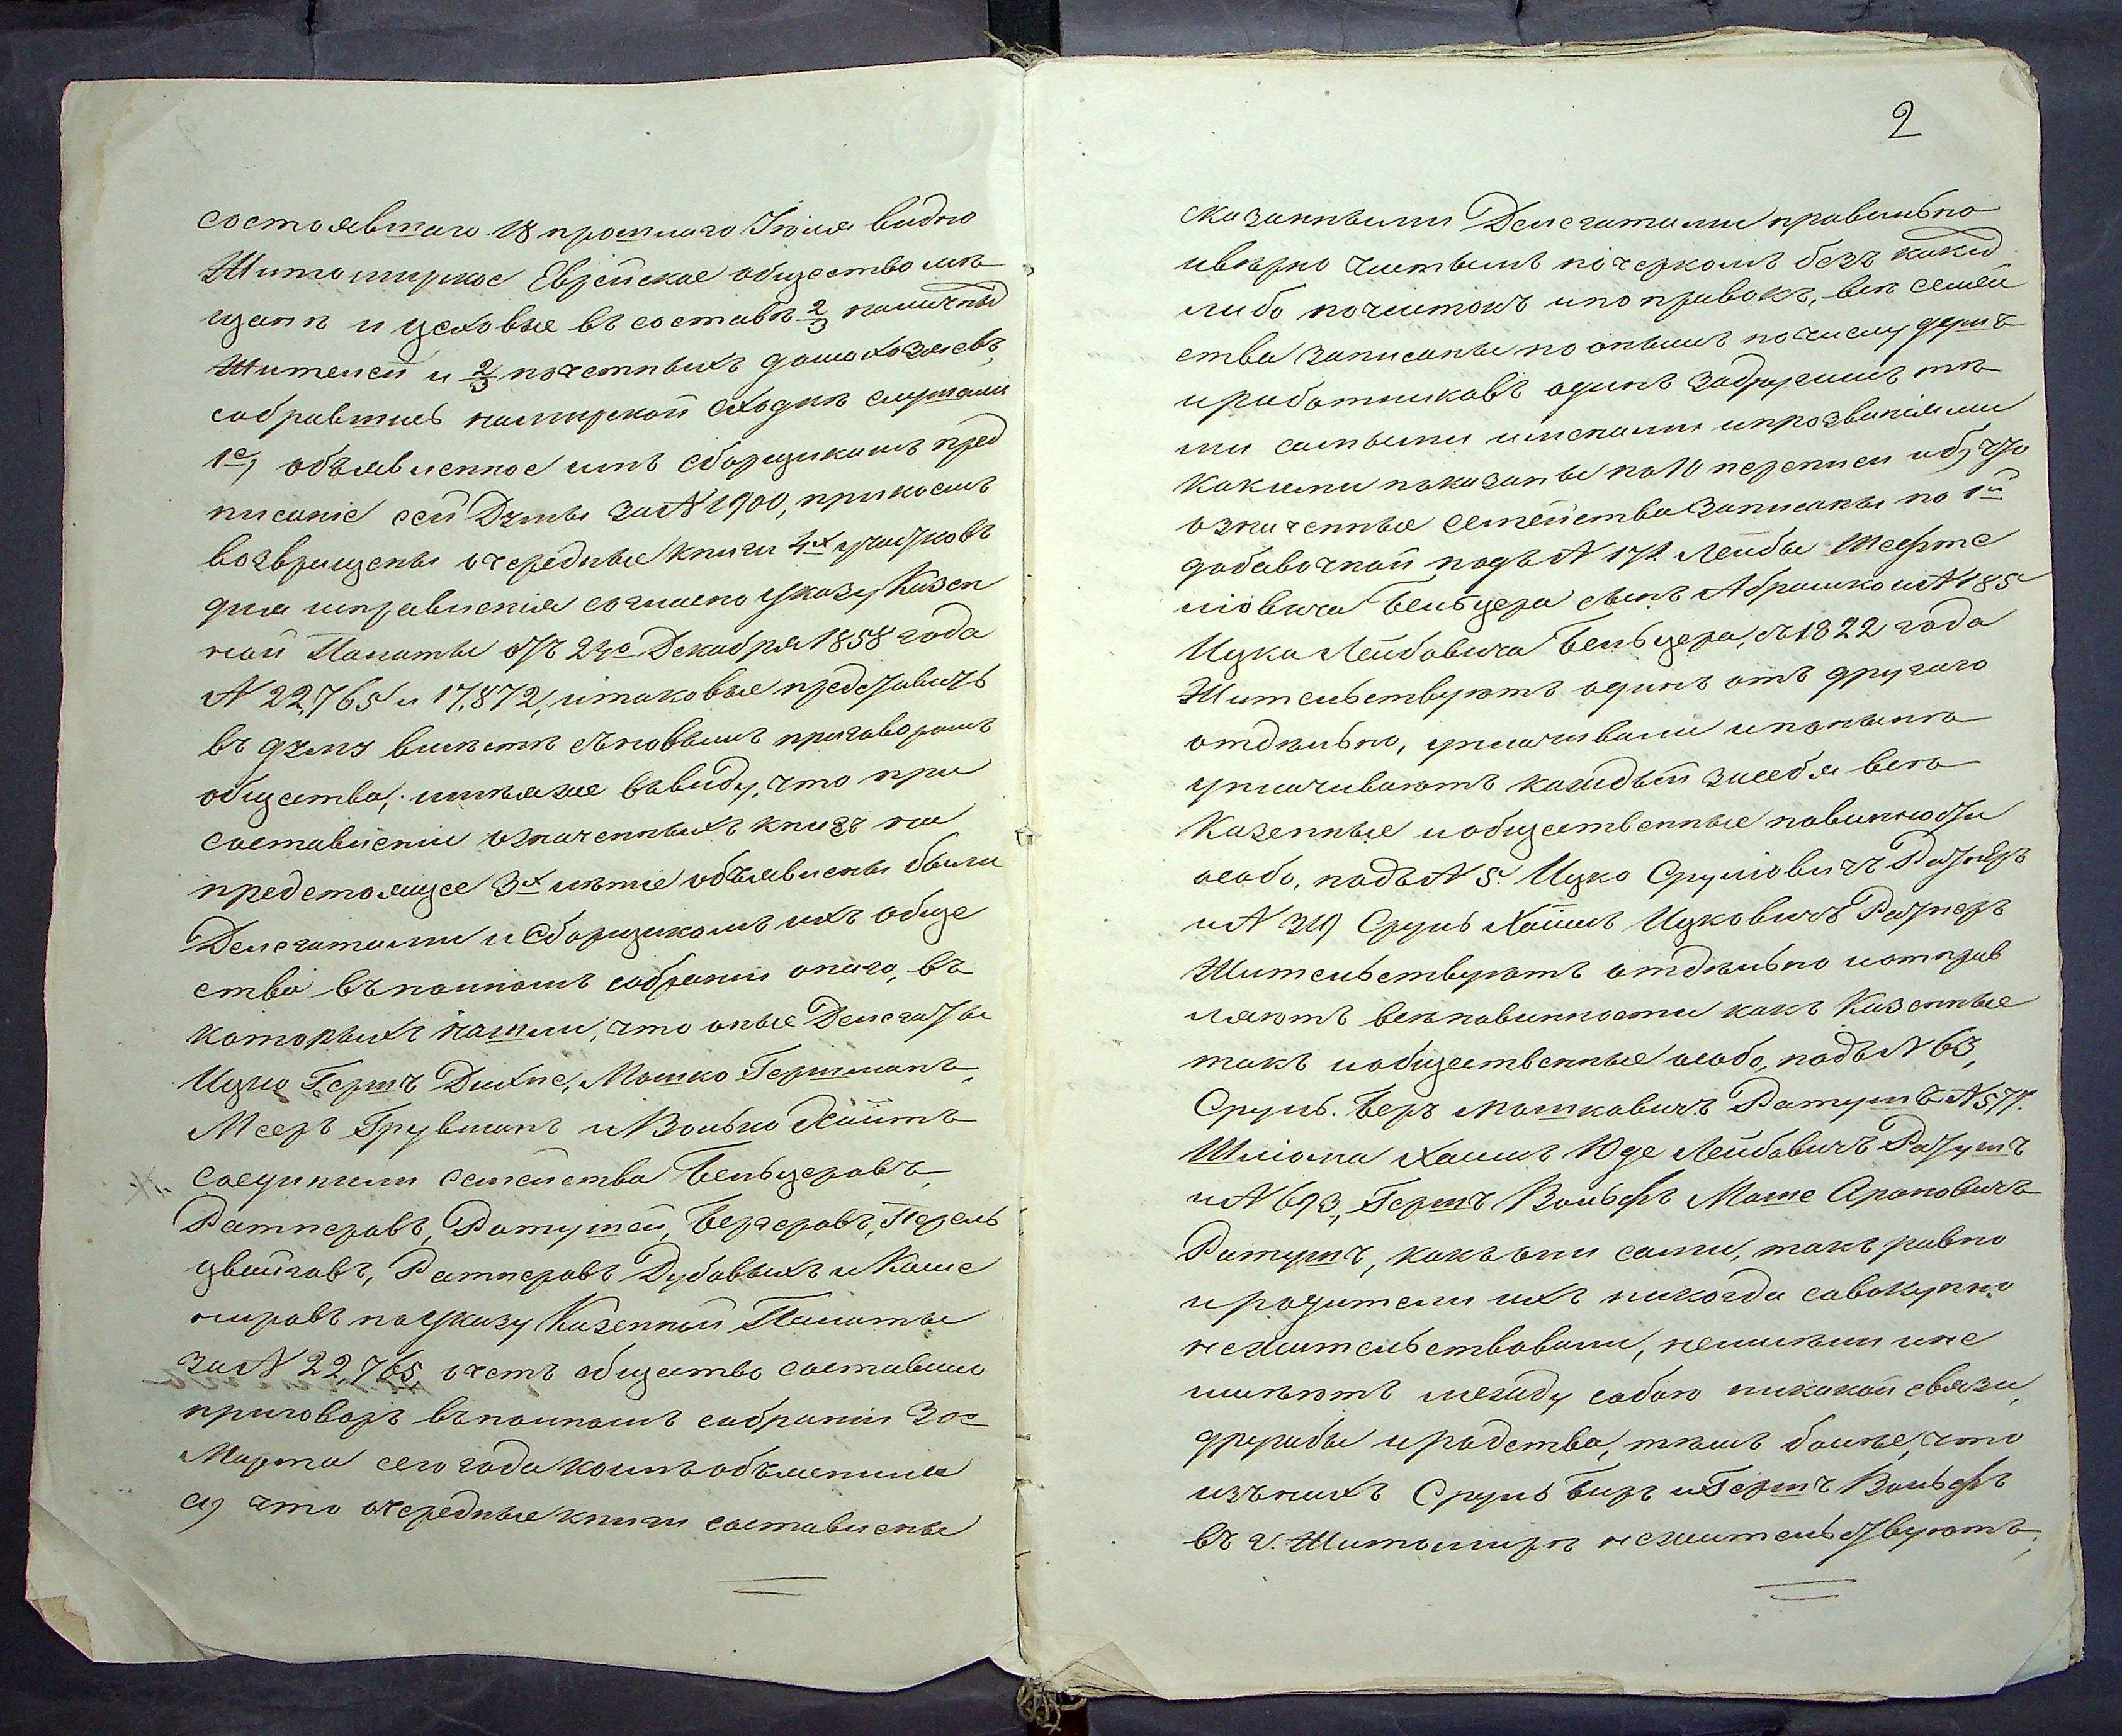 состоявшаго 18 прошлаго Іюля видно
Житомирское Еврейское общество мѣ
щанъ и цеховые въ составѣ 2/3 наличных
Жителей и 2/3 почетныхъ домохозяевъ,
собравшись намирской сходкѣ слушали
1е, объявленное имъ сборщикамъ пред
писаніе сей Думы за N 1900, при коемъ
возвращены очередные книги 4х участковъ
для исправленія согласно указу Казен
ной Палаты отъ 24го Декабря 1858 года
N 22,765 и 17,872, и таковые представить
въ думу вмѣстѣ съновымъ приговоромъ
общества; имѣя же въвиду, что при
составленіи означенныхъ книгъ на
предстоящее 3х лѣтіе объявлены были
Делегатами и Сборщикомъ ихъ обще
ства въполномъ собраніи онаго, въ
которыхъ нашли, что оные Делегаты
Ицко Гершъ Дихне, Мошко Гершманъ,
Мееръ Грувманъ и Волько Хаитъ
соединили семейства Бельцеровъ,
Ратнеровъ, Ратушей, Бергеровъ, Перель
цвейговъ, Ратнеровъ Дубовыхъ и Каше
мировъ поуказу Казенной Палаты
заN 22,765, о чемъ общество составило
приговоръ въполномъ собраніи 30го
Марта сего года коимъ объяснили
а, что очередные книги составлены
2
сказанными Делегатами правильно
ивѣрно чистымъ почеркомъ безъ каких
либо почистокъ ипоправокъ, всѣ семей
ства записаны по онымъ почислу душъ
иработниковъ одинъ задругимъ тѣ
ми самыми именами ипрозваніями
какими показаны по10 переписи иб, что
означенные семейства записаны по 1й
добавочной подъN 171 Лейбы Шефте
ліовича Бельцера сынъ Абрамко иN 185
Ицка Лейбовича Бельцера, съ1822 года
Жительствуютъ одинъ отъ другаго
отдѣльно, уплачивали инынѣ
уплачиваютъ каждый засебя всѣ
Казенные иобщественные повинности
особо, подъN 5. Ицко Сруліовичъ Ратнеръ
иN 319 Сруль Хаимъ Ицковичъ Ратнеръ
Жительствуютъ отдѣльно иотправ
ляютъ всѣповинности какъ Казенные
такъ иобщественные особо, подъN 63,
Сруль. Беръ Мошковичъ Ратушъ N 577.
Шліома Хаимъ Юде Лейбовичъ Ратушъ
иN 693, Гершъ Вольфъ Моше Ароновичъ
Ратушъ, какъ они сами, такъ равно
иродители ихъ никогда совокупно
нежительствовали, неимѣли ине
имѣютъ между собою никакой связи,
дружбы иродства, тѣмъ болѣе, что
изънихъ Сруль Беръ иГершъ Вольфъ
въ г. Житомирѣ нежительствуютъ,